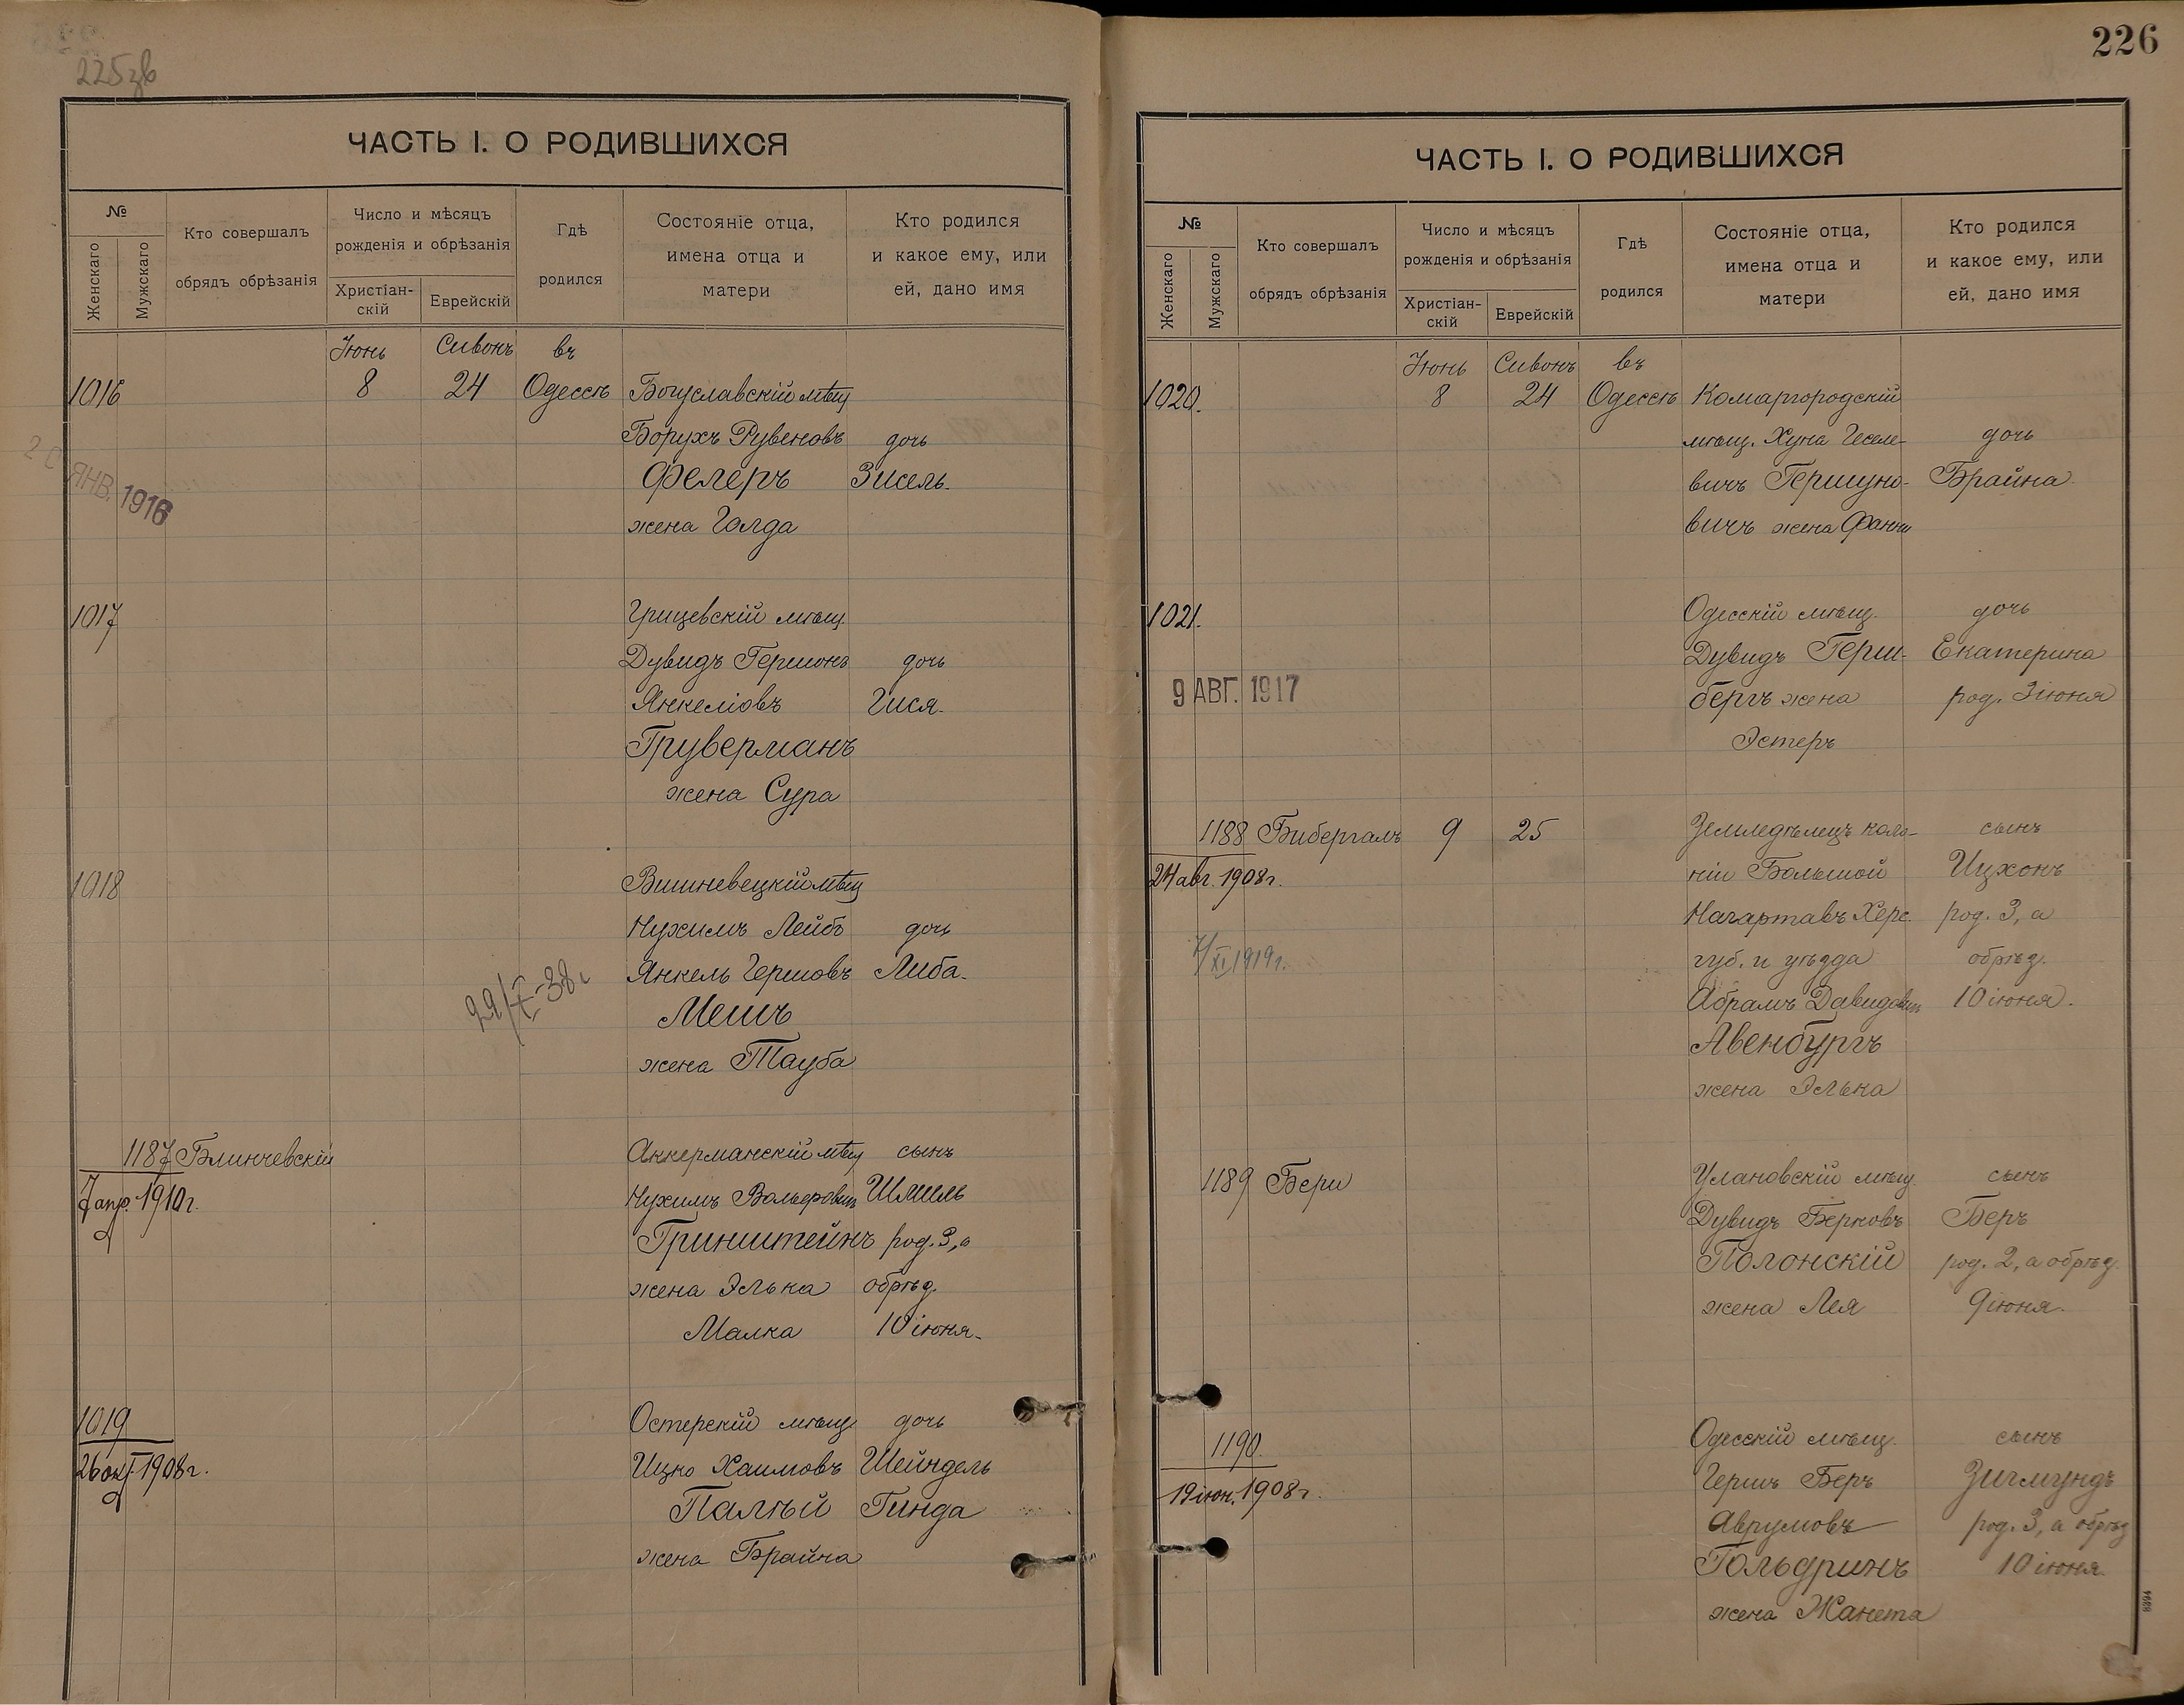 225зв
ЧАСТЬ I. О РОДИВШИХСЯ
№
Женскаго
Мужскаго
Кто совершалъ
обрядъ обрѣзанія
Число и мѣсяцъ
рожденія и обрѣзанія
Христіан-
скій
Еврейскій
Гдѣ
родился
Состояніе отца,
имена отца и
матери
Кто родился
и какое ему, или
ей, дано имя
Іюнь Сивонъ въ
1016 8 24 Одессѣ Богуславскій мѣщ
Борухъ Рувеновъ дочь
Фелеръ Зисель.
жена Голда
ЯНВ. 1916
1017 Грицевскій мѣщ.
Дувидъ Гершонъ дочь
Янкеліовъ Гися.
Груверманъ
жена Сура
1018 Вишневецкій мѣщ
Нухимъ Лейбъ дочь
Янкель Гершовъ Либа.
Мешъ
жена Тауба
29/X-38г
1187 Блинчевскій Аккерманскій мѣщ сынъ
7 апр. 1910г. Нухимъ Вольфовичъ Шмиль
Гринштейнъ род. 3, а
жена Элька обрѣз.
Малка 10 іюня.
1019 Остерскій мѣщ. дочь
26 окт. 1908г. Ицко Хаимовъ Шейндель
Палѣй Гинда
жена Брайна
226
ЧАСТЬ I. О РОДИВШИХСЯ
№
Женскаго
Мужскаго
Кто совершалъ
обрядъ обрѣзанія
Число и мѣсяцъ
рожденія и обрѣзанія
Христіан-
скій
Еврейскій
Гдѣ
родился
Состояніе отца,
имена отца и
матери
Кто родился
и какое ему, или
ей, дано имя
Іюнь Сивонъ въ
1020. 8 24 Одессѣ Комаргородскій
мѣщ. Хуна Геселе- дочь
вичъ Гершуно- Брайна.
вичъ жена Фанни
1021. Одесскій мѣщ. дочь
Дувидъ Герш- Екатерина
9 АВГ. 1917 бергъ жена род. 3 іюня
Эстеръ
1188 Бибергалъ 9 25 Земледѣлецъ коло- сынъ
24 авг. 1908г. ніи Большой Ицхокъ
Нагартавъ Херс. род. 3, а
7/XI 1919г. губ. и уѣзда обрѣз.
Абрамъ Давидовичъ 10 іюня.
Авенбургъ
жена Элька
1189 Бери Улановскій мѣщ. сынъ
Дувидъ Берковъ Беръ
Полонскій род. 2, а обрѣз.
жена Лея 9 іюня.
1190. Одесскій мѣщ. сынъ
19 іюн. 1908г. Гершъ Беръ Зигмундъ
Аврумовъ род. 3, а обрѣз
Гольдринъ 10 іюня.
жена Жанета